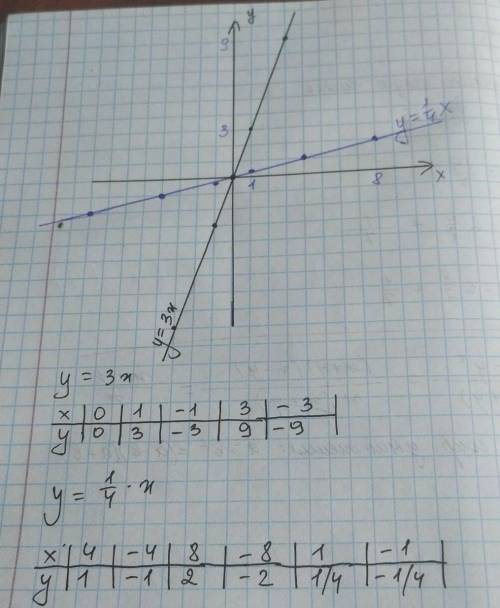 y
9
3
y = 1/4 x
1
8
x
y = 3x
y = 3x
x | 0 | 1 | -1 | 3 | -3
y | 0 | 3 | -3 | 9 | -9
y = 1/4 · x
x | 4 | -4 | 8 | -8 | 1 | -1
y | 1 | -1 | 2 | -2 | 1/4 | -1/4